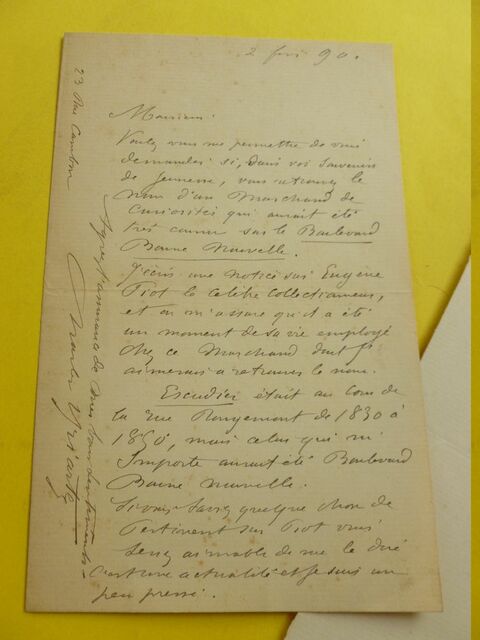 2 fév 90.
Monsieur
Voulez vous me permettre de vous
demander si, dans vos souvenirs
de jeunesse, vous retrouvez le
nom d'un Marchand de
curiosités qui aurait été
très connu sur le Boulevard
Bonne Nouvelle.
J'écris une notice sur Eugène
Piot le célèbre collectionneur,
et on m'assure qu'il a été
un moment de sa vie employé
chez ce Marchand dont je
aimerais a retrouver le nom.
Escudier était au coin de
la rue Rougemont de 1830 à
1850, mais celui qui m'
importe aurait été Boulevard
Bonne Nouvelle.
Si vous savez quelque chose de
pertinent sur Piot vous
serez aimable de me le dire
c'est une actualité et je suis un
peu pressé.
Agréez l'assurance de mes sentiments
Charles Yriarte
23 Rue Cambon